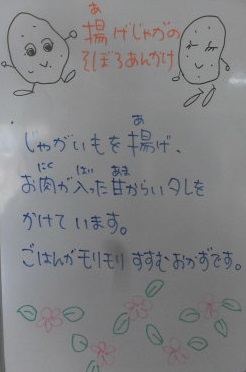 揚げじゃがの
そぼろあんかけ
じゃがいもを揚げ、
お肉が入った甘からいタレを
かけています。
ごはんがモリモリすすむおかずです。